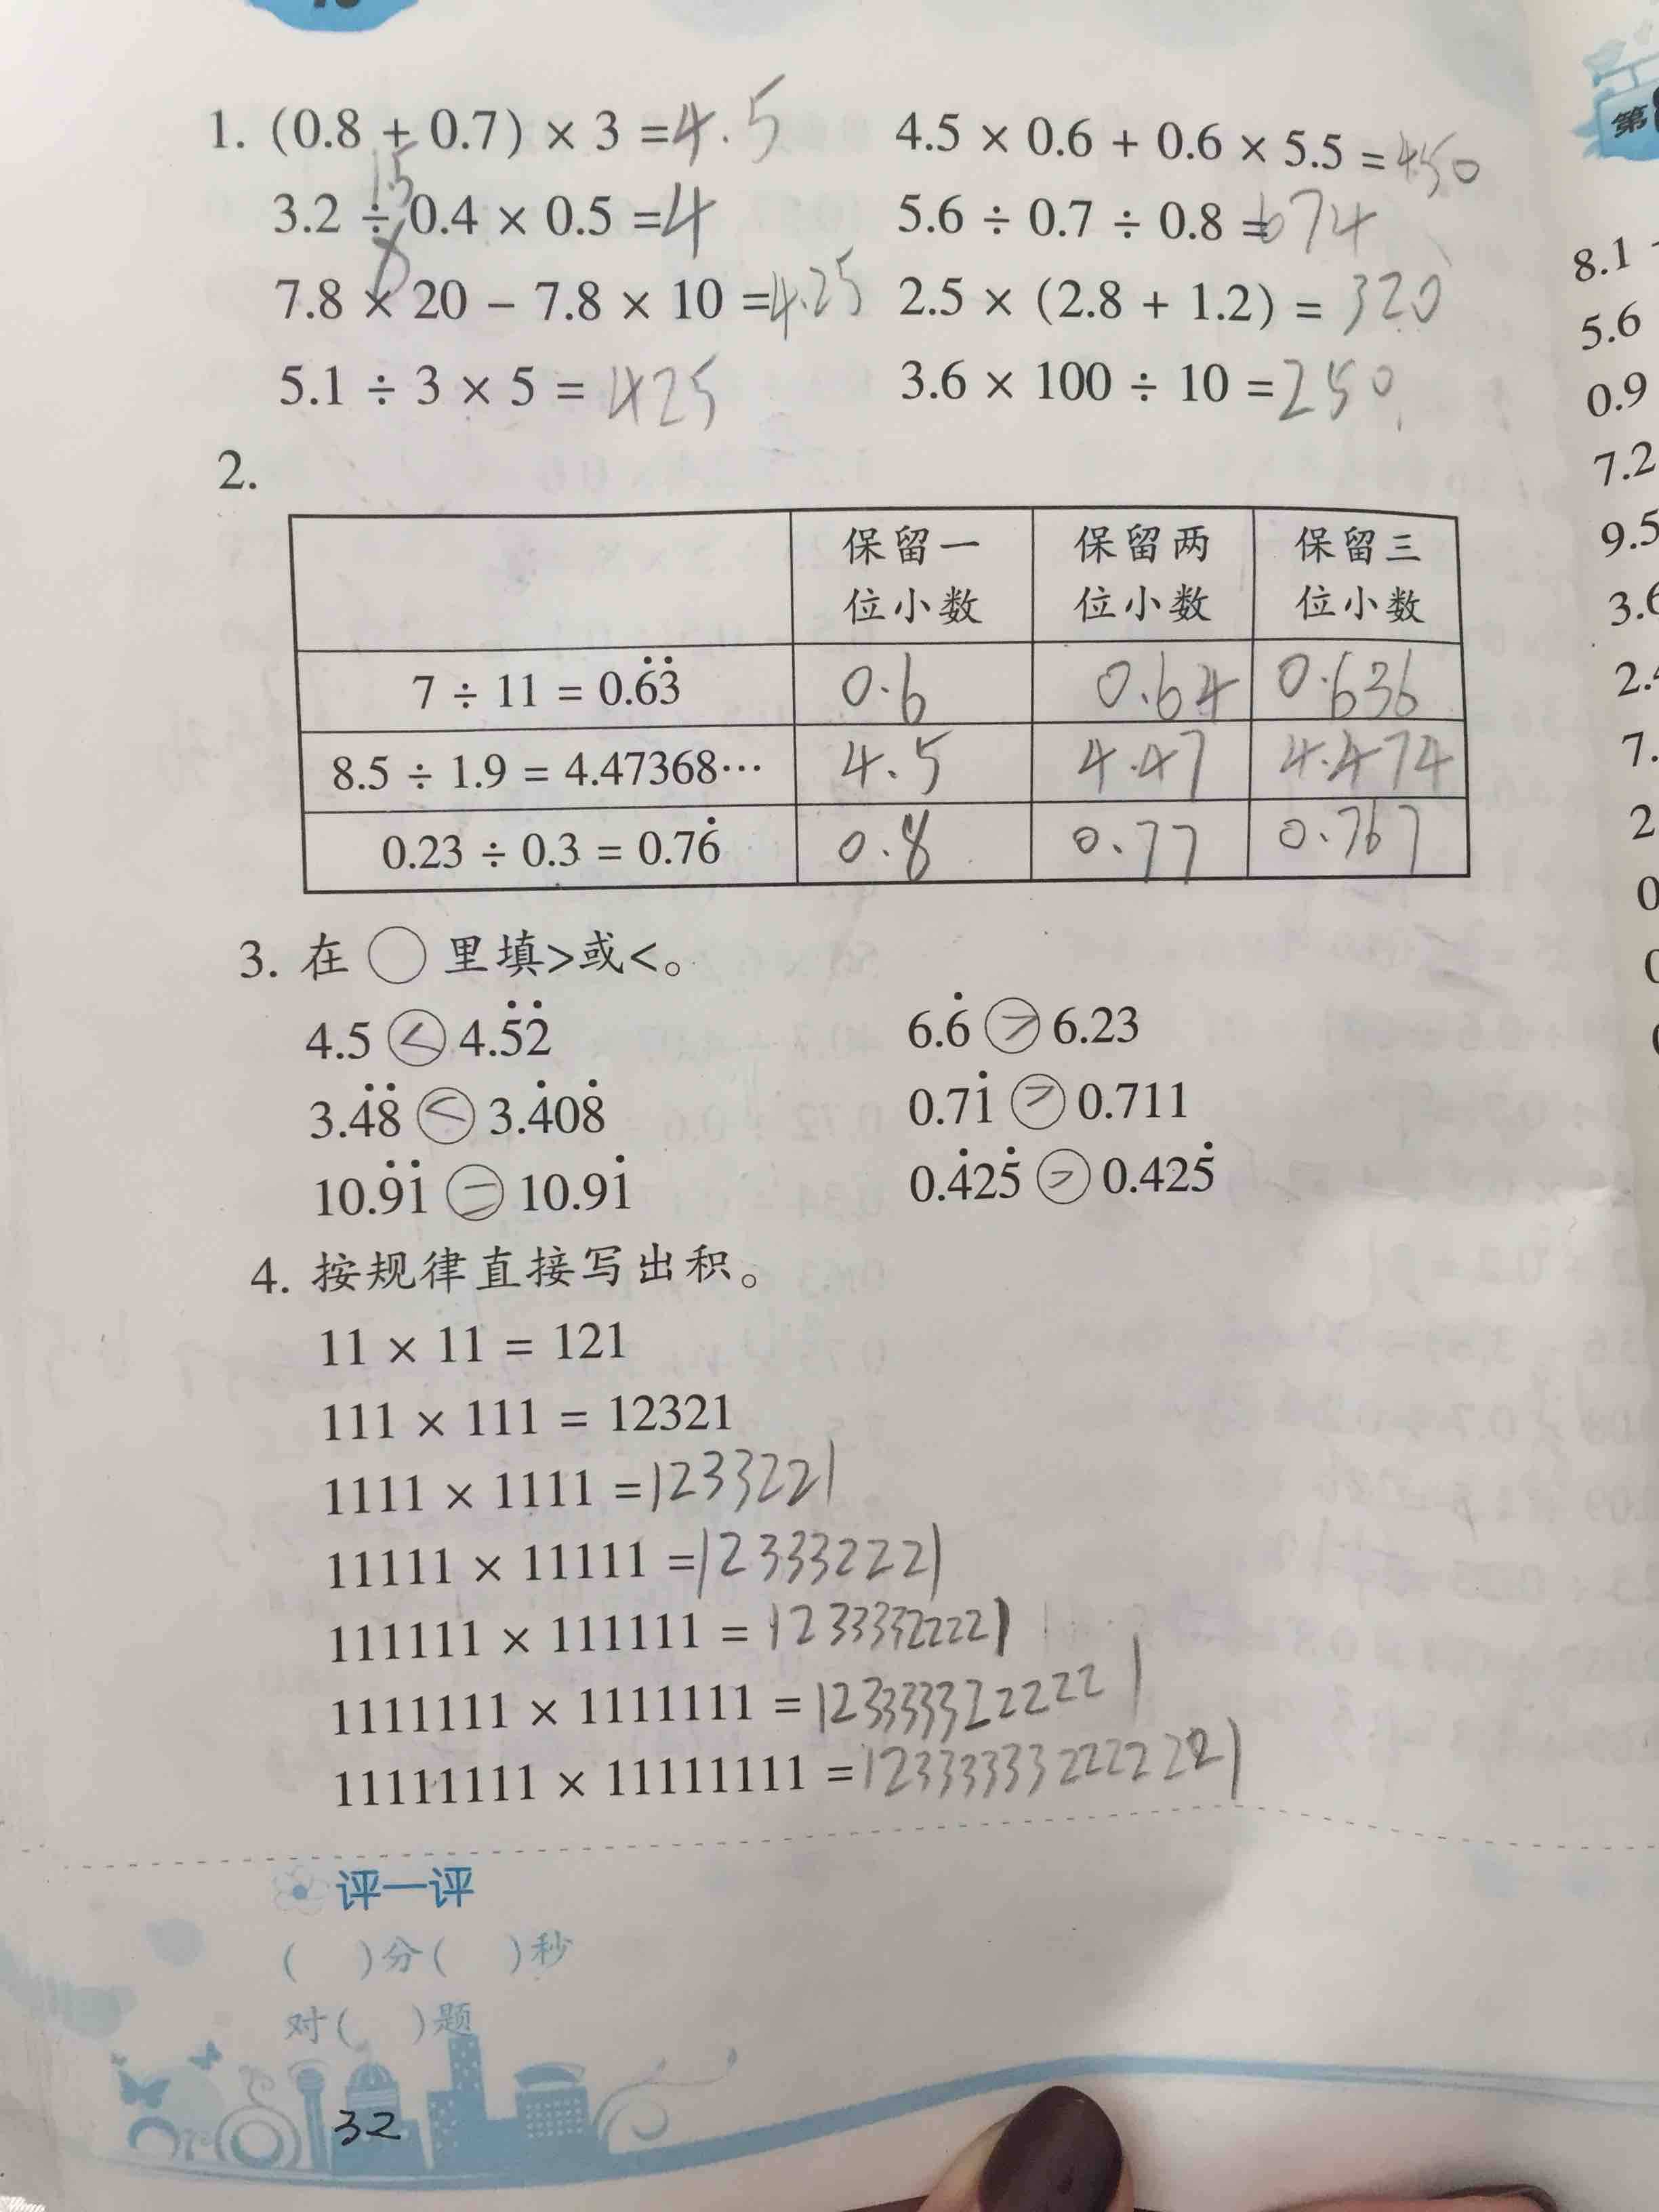 1. (0.8 + 0.7) × 3 =4.5
4.5 × 0.6 + 0.6 × 5.5 =450
15
3.2 ÷ 0.4 × 0.5 =4
5.6 ÷ 0.7 ÷ 0.8 =674
8
7.8 × 20 − 7.8 × 10 =4.25
2.5 × (2.8 + 1.2) = 320
5.1 ÷ 3 × 5 = 425
3.6 × 100 ÷ 10 =250
2.
保留一位小数 保留两位小数 保留三位小数
7 ÷ 11 = 0.6̇3̇ 0.6 0.64 0.636
8.5 ÷ 1.9 = 4.47368… 4.5 4.47 4.474
0.23 ÷ 0.3 = 0.76̇ 0.8 0.77 0.767
3. 在 ○ 里填>或<。
4.5 < 4.5̇2̇
6.6̇ > 6.23
3.4̇8̇ < 3.4̇08̇
0.71̇ > 0.711
10.9̇1̇ = 10.91̇
0.4̇25̇ > 0.425̇
4. 按规律直接写出积。
11 × 11 = 121
111 × 111 = 12321
1111 × 1111 =1233221
11111 × 11111 =123332221
111111 × 111111 = 12333322221
1111111 × 1111111 = 1233333222221
11111111 × 11111111 =123333332222221
评一评
( )分( )秒
对( )题
32
第
8.1
5.6
0.9
7.2
9.5
3.6
2.
7.
2
0
0